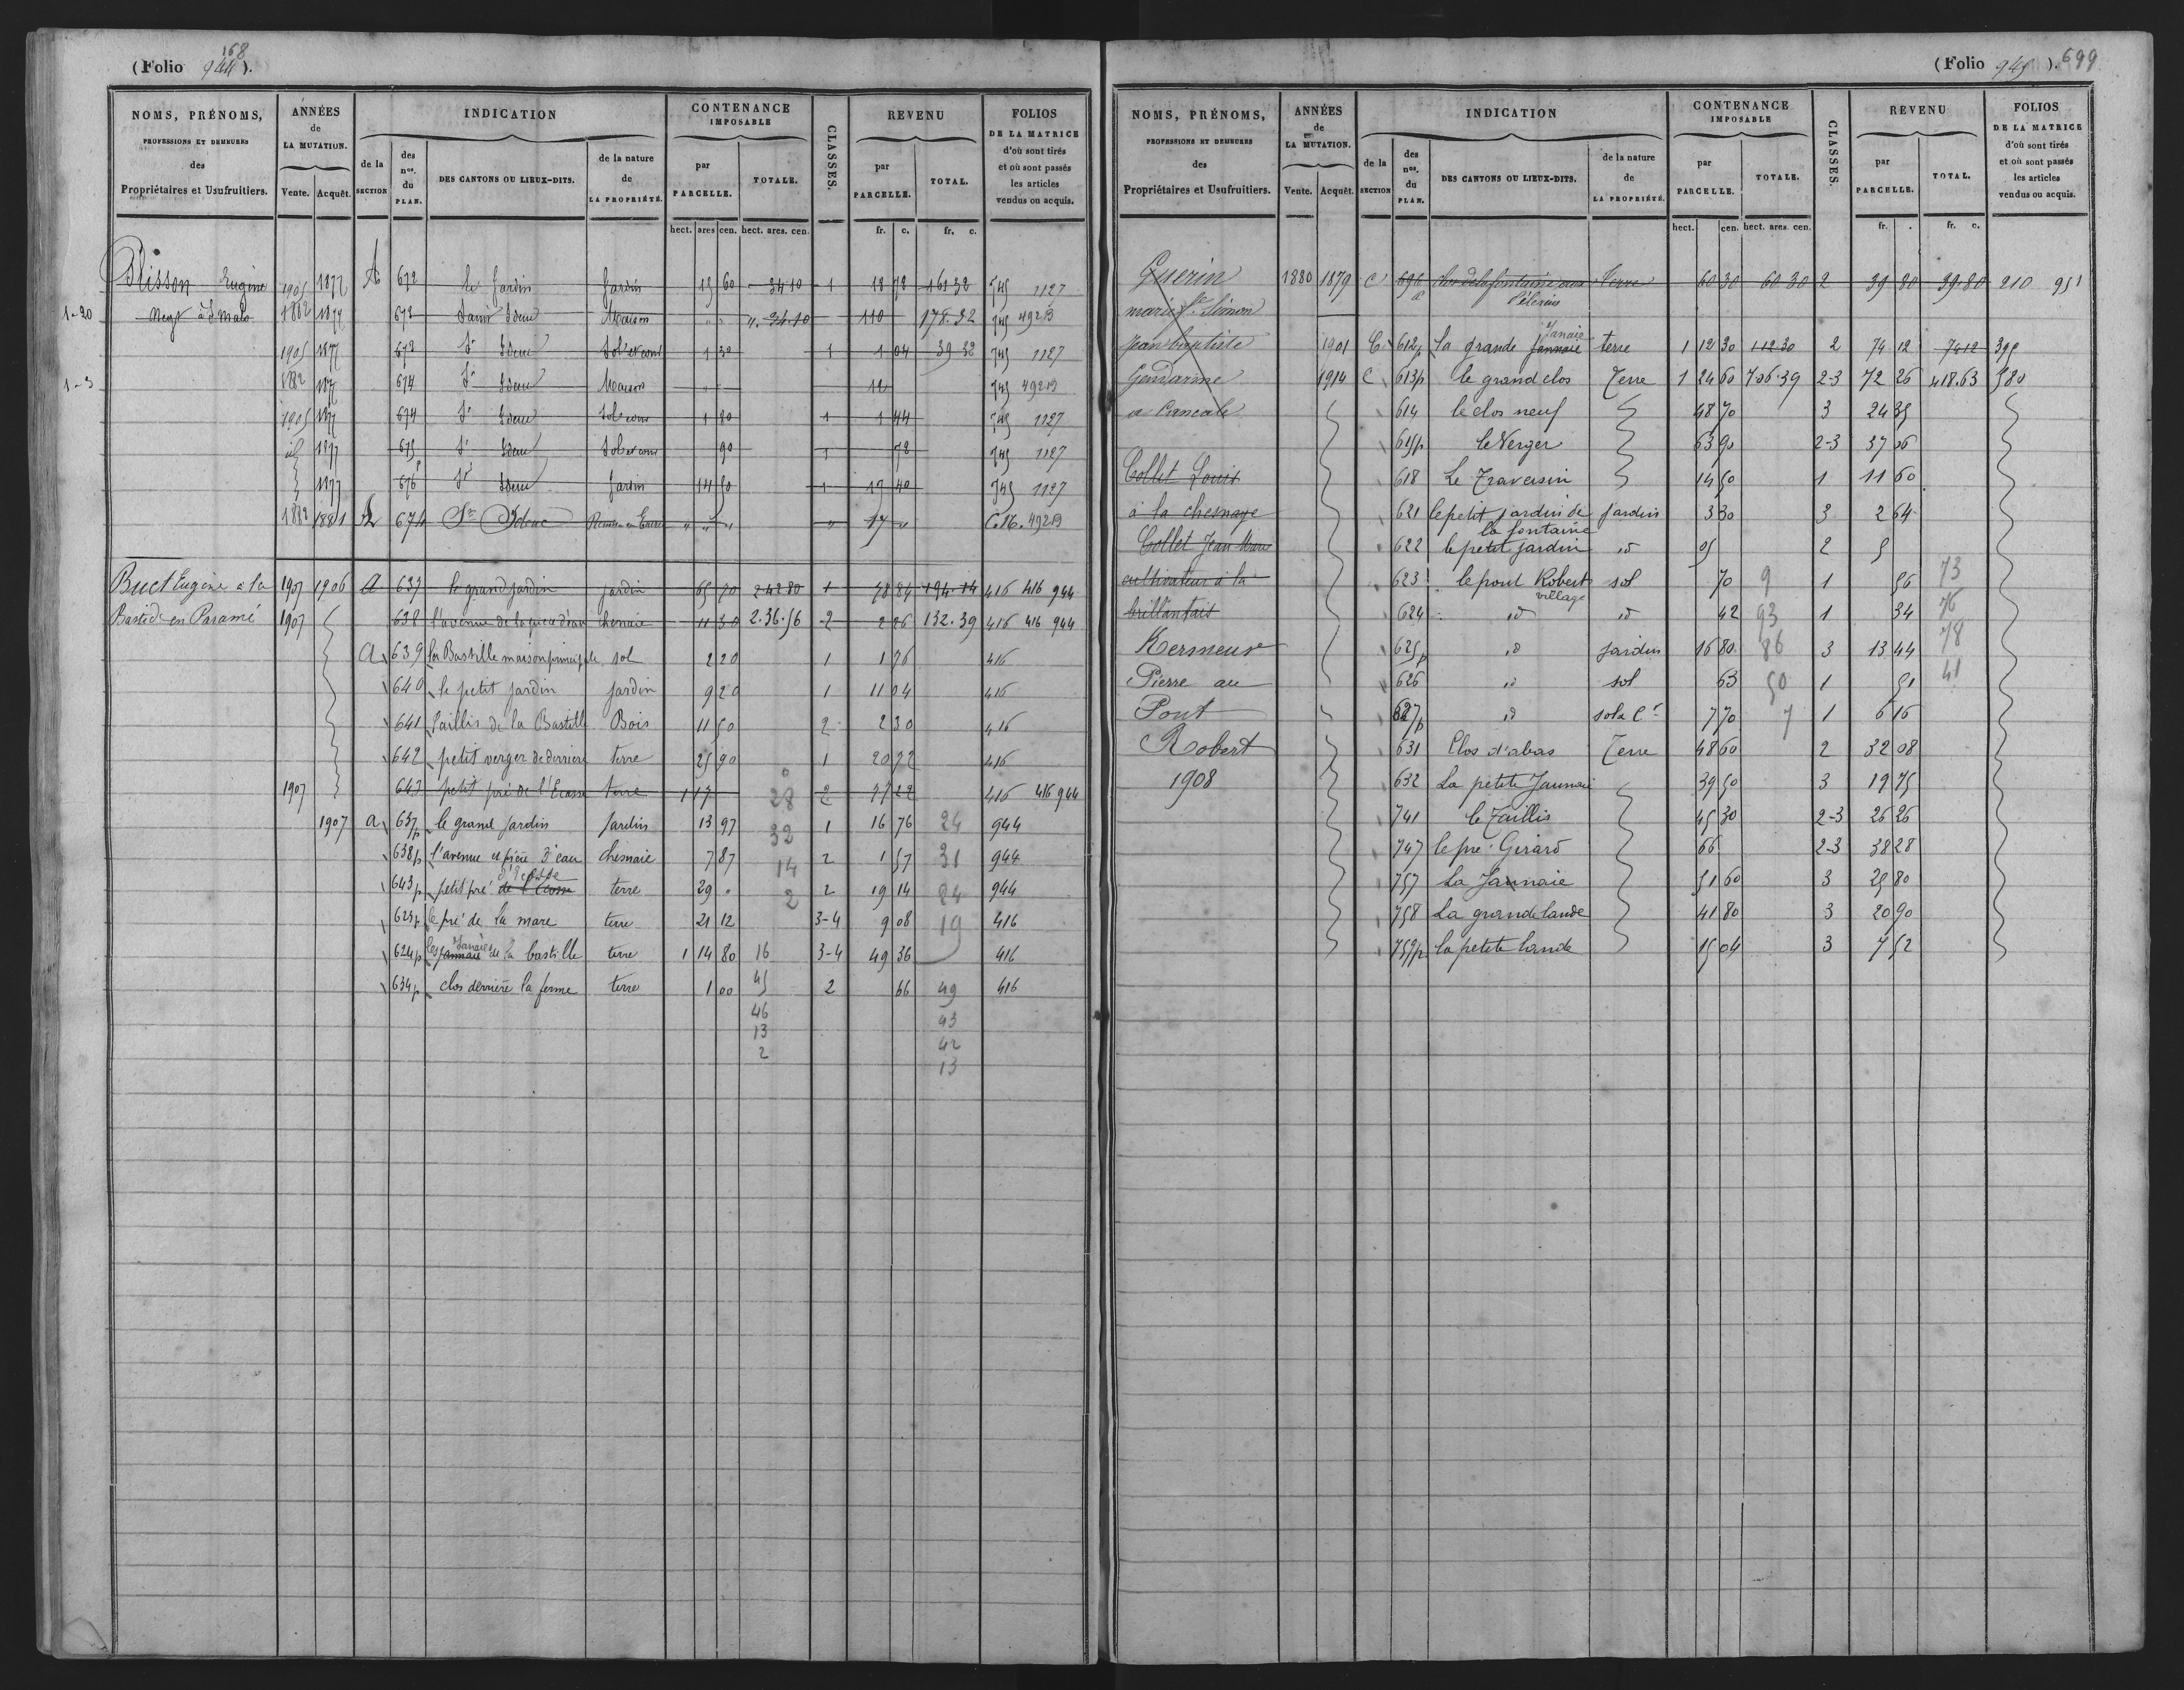 168
(Folio 944).
NOMS, PRÉNOMS, PROFESSIONS ET DEMEURES des Propriétaires et Usufruitiers. ANNÉES de LA MUTATION. Vente. Acquêt. INDICATION de la SECTION des nos. du PLAN. DES CANTONS OU LIEUX-DITS. de la nature de LA PROPRIÉTÉ. CONTENANCE IMPOSABLE par PARCELLE. TOTALE. CLASSES. REVENU par PARCELLE. TOTAL. FOLIOS DE LA MATRICE d'où sont tirés et où sont passés les articles vendus ou acquis.
hect. ares cen. hect. ares. cen. fr. c. fr. c.
Plisson Eugène 1905 1877 A 672 Le Jardin Jardin 15 60 34 10 1 18 72 161 32 745 1127
1-20 Negt à St Malo 1882 1877 673 Saint Ideuc Maison " " " 34.10 110 178.32 745 492 B
1905 1877 673 St Ideuc Sol et cour 1 30 1 1 04 39 32 745 1127
1-3 1882 1877 674 St Ideuc Maison 12 745 492 B
1905 1877 674 St Ideuc Sol et cour 1 80 1 1 44 745 1127
id 1877 675 St Ideuc Sol et cour 90 1 72 745 1127
1877 676 p St Ideuc Jardin 14 50 1 17 40 745 1127
1882 1881 A 674 St Ideuc " " " " 17 " 492 B
Buet Eugène à la 1907 1906 A 637 le grand jardin jardin 65 70 2 42 80 1 78 84 194.14 416 416 944
Bastide en Paramé 1907 638 l'avenue de la pièce d'eau chesnaie 11 30 2.36.56 2 2 26 132.39 416 416 944
A 639 la Bastille maison principale sol 2 20 1 1 76 416
640 le petit jardin jardin 9 20 1 11 04 416
641 Taillis de la Bastille Bois 11 50 2 2 30 416
642 petit verger de derrière terre 25 90 1 20 72 416
1907 643 petit pré de l'Ecosse terre 1 17 28 2 77 22 416 416 944
1907 A 637 p le grand jardin jardin 13 97 32 1 16 76 24 944
638 p l'avenue et pièce d'eau chesnaie 7 87 14 2 1 57 31 944
643 p petit pré de l'Ecosse terre 29 " 2 2 19 14 24 944
623 p le pré de la mare terre 21 12 3-4 9 08 19 416
624 p les Jannaie Janaies de la bastille terre 1 14 80 16 3-4 49 36 416
634 p clos derrière la ferme terre 1 00 45 2 66 49 416
46 43
13 42
2 13
(Folio 945). 699
NOMS, PRÉNOMS, PROFESSIONS ET DEMEURES des Propriétaires et Usufruitiers. ANNÉES de LA MUTATION. Vente. Acquêt. INDICATION de la SECTION des nos. du PLAN. DES CANTONS OU LIEUX-DITS. de la nature de LA PROPRIÉTÉ. CONTENANCE IMPOSABLE par PARCELLE. TOTALE. CLASSES. REVENU par PARCELLE. TOTAL. FOLIOS DE LA MATRICE d'où sont tirés et où sont passés les articles vendus ou acquis.
hect. cen. hect. ares. cen. fr. . fr. c.
Guerin 1880 1879 C 696 a clos de la fontaine aux Pélerins Terre 60 30 60 30 2 39 80 39.80 210 951
marie Simon
Jean baptiste 1901 C 612 p la grande Jannaie Janaie terre 1 12 30 1 12 30 2 74 12 74 12 395
Gendarme 1914 C 613 p le grand clos Terre 1 24 60 706.39 2-3 72 26 418.63 580
a Cancale 614 le clos neuf 48 70 3 24 35
615 p le Verger 63 90 2-3 37 06
Collet Louis 618 Le Traversin 14 50 1 11 60
à la chesnaye 621 le petit jardin de la fontaine jardin 3 30 3 2 64
Collet Jean Marie 622 le petit jardin id 05 2 5
cultivateur à la 623 le pont Robert village sol 70 9 1 56 73
brillantais 624 id id 42 93 1 34 76
Kermeur 625 p id jardin 16 80 86 3 13 44 78
Pierre au 626 id sol 63 50 1 51 41
Pont 627 p id sol & Cr 7 70 7 1 6 16
Robert 631 Clos d'abas Terre 48 60 2 32 08
1908 632 La petite Jaunaie 39 50 3 19 75
741 le Taillis 45 30 2-3 26 26
747 le pré Girard 66 2-3 38 28
757 La Jaunaie 51 60 3 25 80
758 La grande lande 41 80 3 20 90
759 p la petite lande 15 04 3 7 52